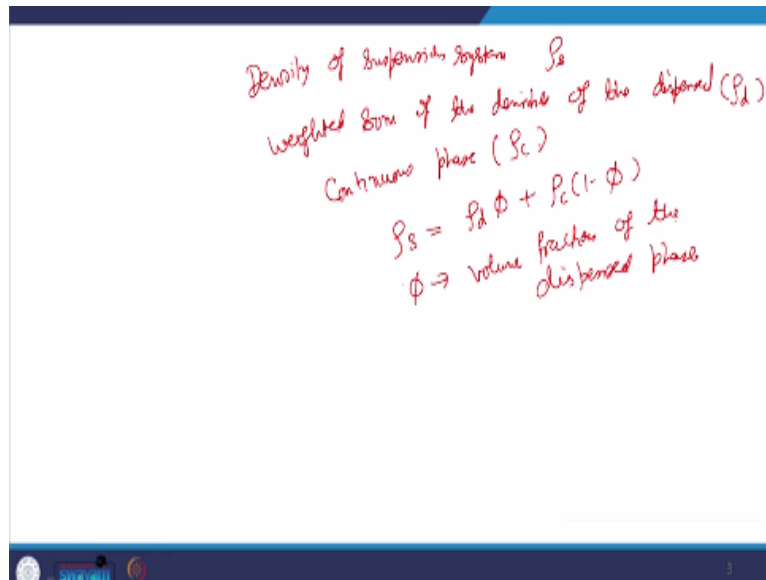 Density of Suspension System ρs
Weighted Sum of the densities of the dispersed (ρd)
Continuous phase (ρc)
ρs = ρd ϕ + ρc (1- ϕ)
ϕ → volume fraction of the
dispersed phase
swayam
3